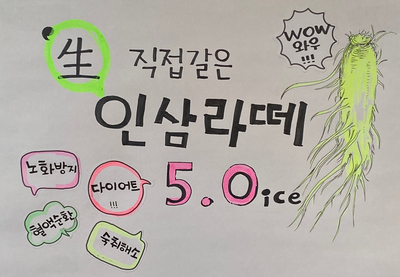 '生
직접같은
WOW
와우
!!!
인삼라떼
5.0ice
노화방지
다이어트
!!!
혈액순환
숙취해소